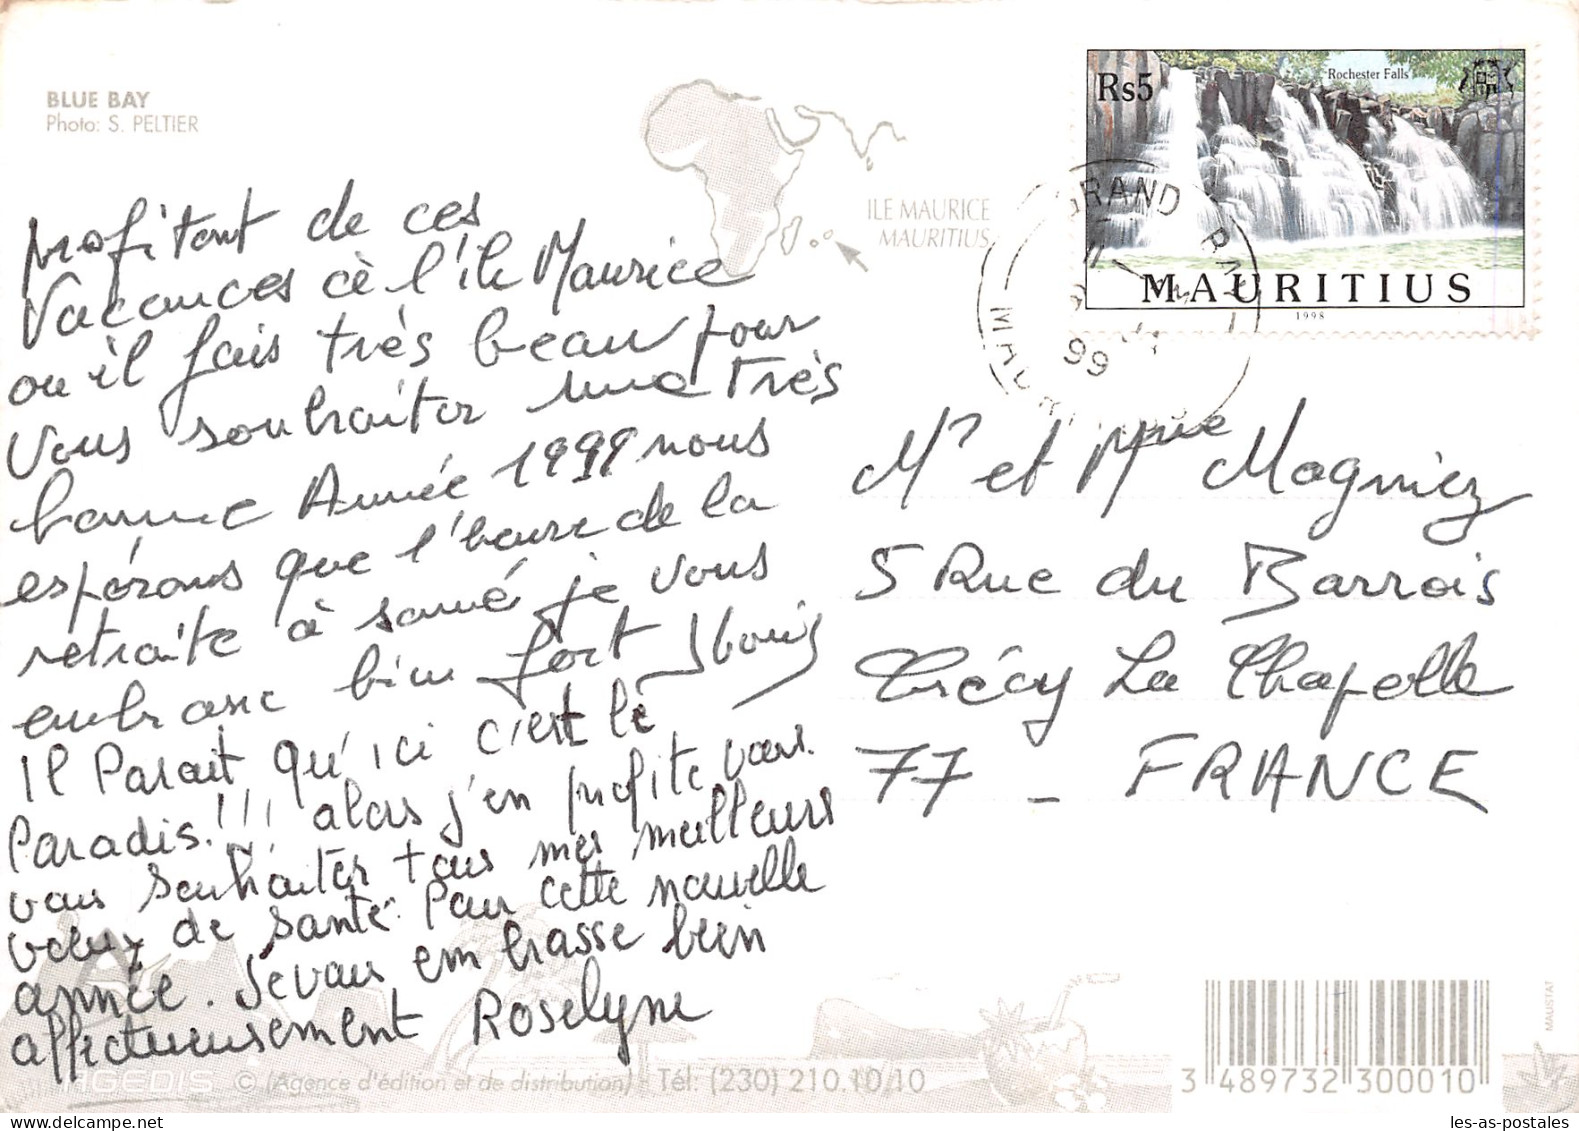 BLUE BAY
Photo: S. PELTIER
ILE MAURICE
MAURITIUS
Rs5
Rochester Falls
MAURITIUS
1998
GRAND
99
profitant de ces
Vacances à l'île Maurice
ou il fais très beau pour
vous souhaiter une très
bonne Année 1999 nous
espérons que l'heure de la
retraite à sonné je vous
embrasse bien fort
Il Parait qu'ici c'est le
Paradis.!!! alors j'en profite pour
vous souhaiter tous mes meilleurs
vœux de santé. Pour cette nouvelle
année. Je vous embrasse bien
affectueusement Roselyne
Mr et Mme Magniez
5 Rue du Barrois
Crécy La Chapelle
77 _ FRANCE
AGEDIS © (Agence d'édition et de distribution) - Tél: (230) 210.10.10
3 489732 300010
MAUSTAT
les-as-postales